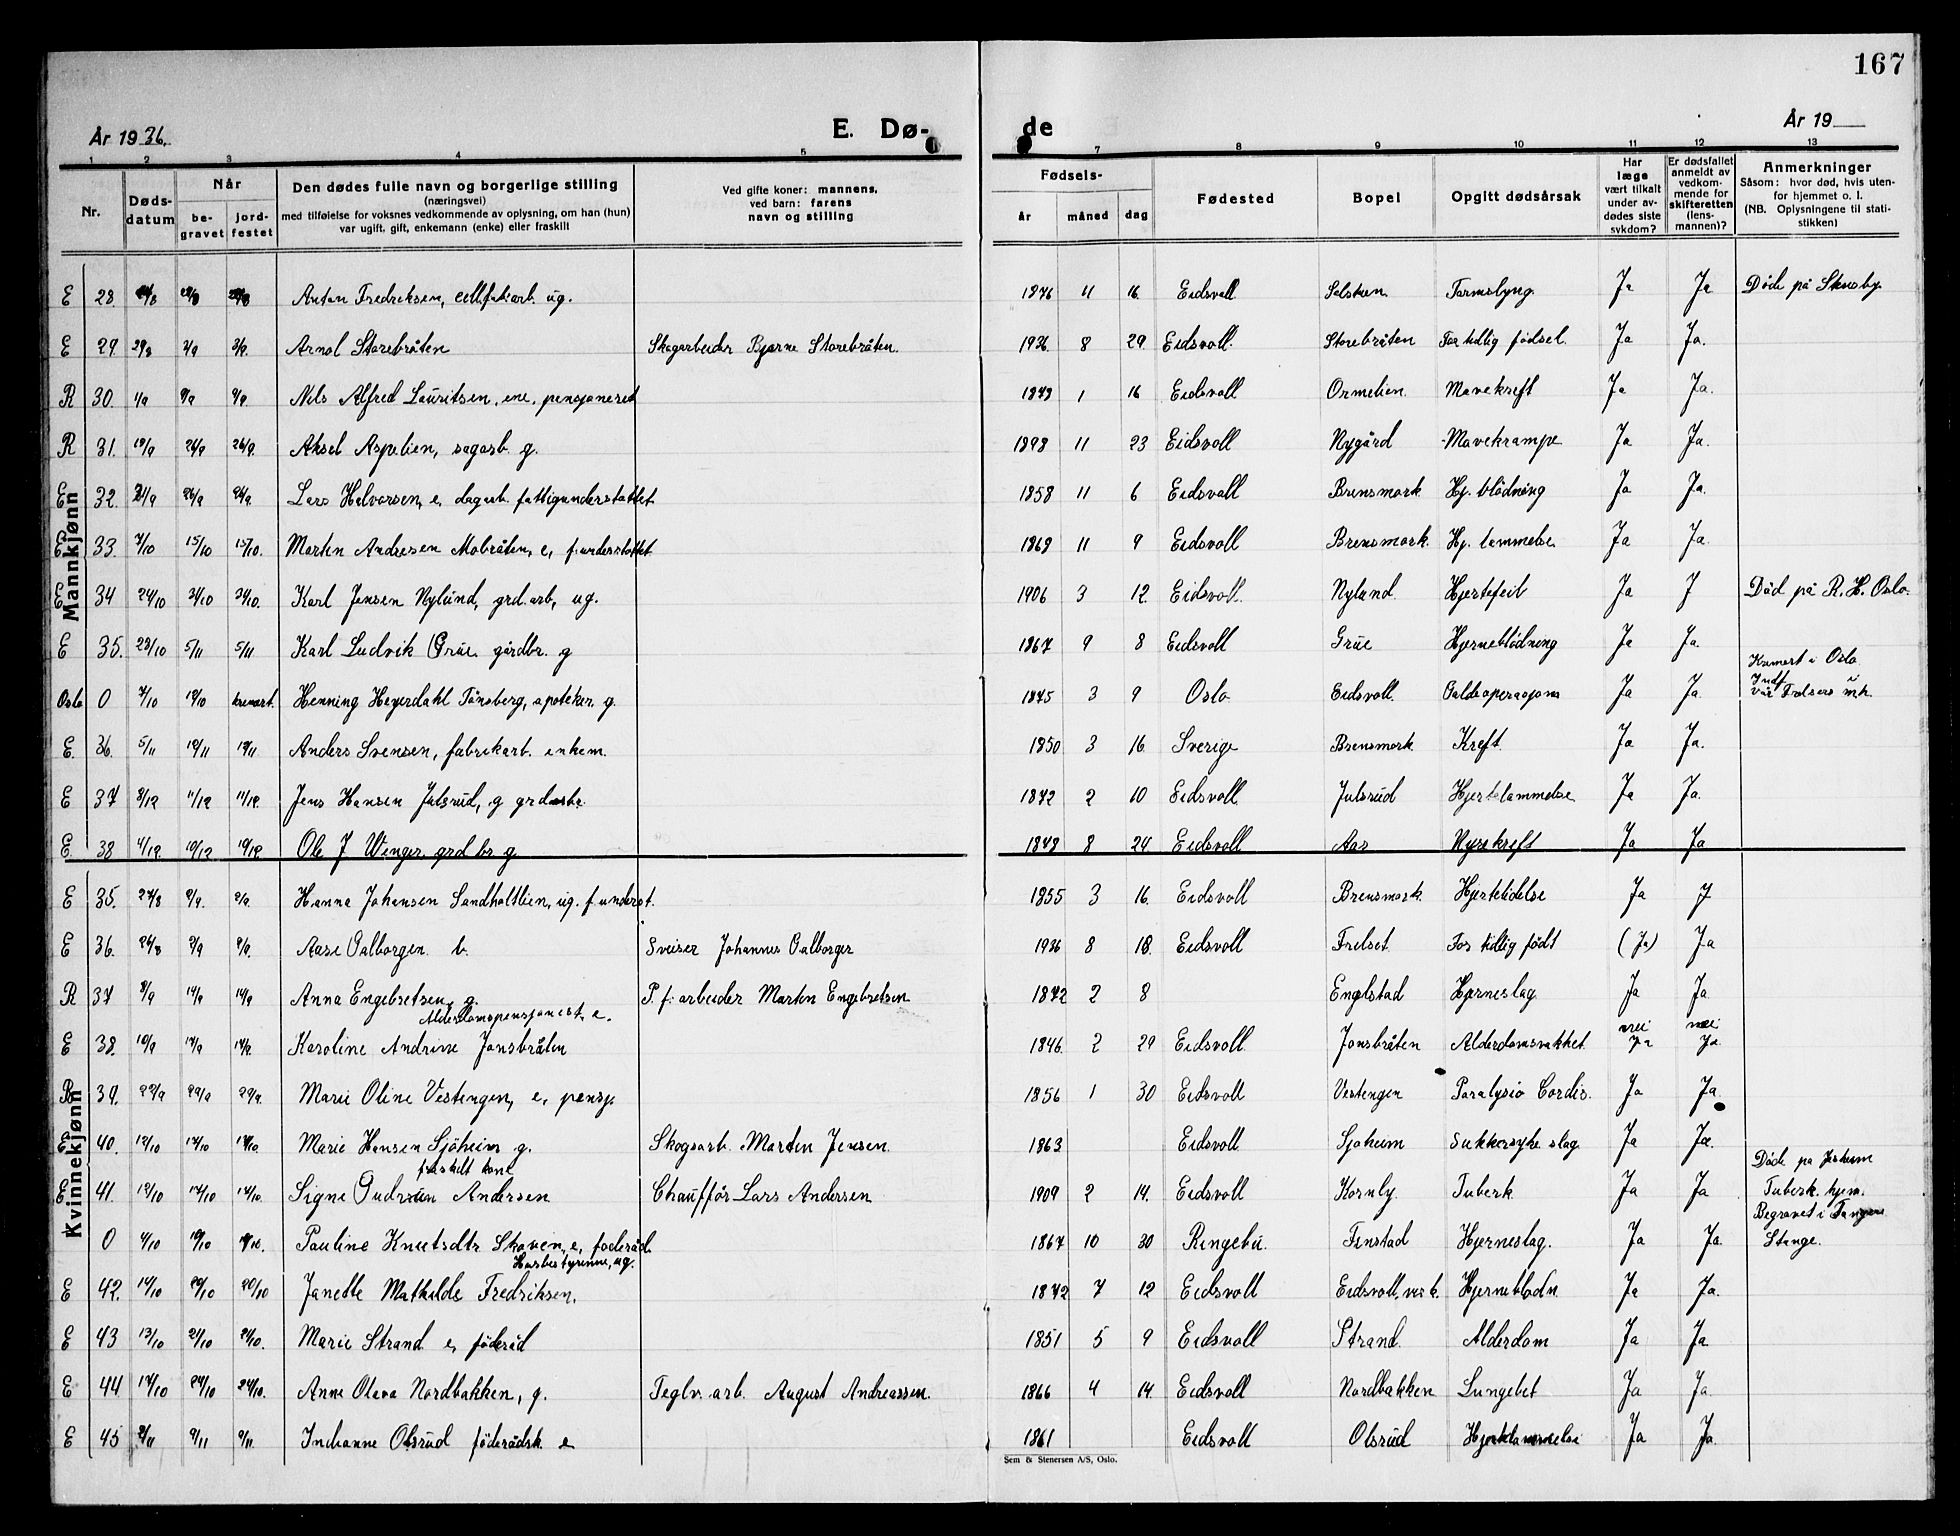 167
År 1936.
E. Dø-
de
År 19
1 2 3 4 5 7 8 9 10 11 12 13
Nr.
Døds-
datum
Når
be-
gravet
jord-
festet
Den dødes fulle navn og borgerlige stilling
(næringsvei)
med tilføielse for voksnes vedkommende av oplysning, om han (hun)
var ugift, gift, enkemann (enke) eller fraskilt
Ved gifte koner: mannens,
ved barn: farens
navn og stilling
Fødsels-
år måned dag
Fødested
Bopel
Opgitt dødsårsak
Har
læge
vært tilkalt
under av-
dødes siste
sykdom?
Er dødsfallet
anmeldt av
vedkom-
mende for
skifteretten
(lens-
mannen)?
Anmerkninger
Såsom: hvor død, hvis uten-
for hjemmet o. l.
(NB. Oplysningene til stati-
stikken)
Mannkjønn
E 28 Anton Fredriksen, cellfabarb. ug. 1876 11 16. Eidsvoll Tarmslyng. Ja Ja Døde på Stensby.
E 29. 29/8 2/9 2/9. Arnol Storebråten Skogarbeider Bjarne Storebråten. 1936. 8 29. Eidsvoll. Storebråten For tidlig fødsel. Ja Ja.
R 30. 1/9 9/9 9/9. Nils Alfred Lauritsen, ene, pensjoneret 1879 1 16 Eidsvoll Ormelien. Mavekreft Ja Ja.
R 31. 19/9 26/9 26/9. Aksel Aspelien, sagarb. g. 1898 11 23 Eidsvoll Nygård Mavekrampe Ja Ja.
E 32. 21/9 26/9 26/9. Lars Halvorsen, e, dagarb. fattigunderstøttet 1858 11 6 Eidsvoll Brensmork Hj. blödning Ja Ja.
E 33. 7/10 15/10 15/10. Martin Andresen Mobråten, e, f.understøttet 1869 11 9 Eidsvoll Brensmork. Hj. lammelse Ja Ja.
E 34 24/10 31/10 31/10. Karl Jensen Nylund, grd.arb, ug. 1906 3 12. Eidsvoll. Nyland Hjertefeil Ja J Död på R. H. Oslo.
E 35. 29/10 5/11 5/11 Karl Ludvik Grue gårdbr. g 1867 9 8 Eidsvoll Grue Hjerneblödning Ja Ja.
Oslo 0 7/10 12/10 kremert. Henning Heyerdahl Tönsberg, apoteker g. 1875 3 9 Oslo Eidsvoll. Galdeoperasjon Ja Ja. Kremert i Oslo
E. 36. 5/11 12/11 12/11. Anders Svensen, fabrikarb. enkem. 1850 3 16 Sverige Brensmork Kreft Ja Ja.
E 37 8/12 11/12 11/12. Jens Hansen Julsrud, g 1872 2 10 Eidsvoll Julsrud Hjertelammelse Ja Ja.
E. 38 4/12. 19/12 19/12. Ole J Wenger grd br g. 1849 8 24 Eidsvoll Aas Nyrekreft Ja Ja
Kvinnekjønn
E 35. 27/8 2/9. 2/9. Hanna Johansen Sandholtlien, ug. f.underst. 1855 3 16. Eidsvoll Brensmork. Hjertelidelse Ja J
E 36. 24/8 2/9 2/9. Aase Galborgen b. Sveiser Johannes Galborger 1936 8 18. Eidsvoll Frelset For tidlig født (Ja) Ja
R 37 8/9 14/9 14/9 Anna Engebretsen, g. P. f. arbeider Martin Engebretsen 1872 2 8 Engelstad Hjerneslag Ja Ja
Alderdomspensjonist, e. nei nei
E 38. 10/9 17/9 17/9. Karoline Andrine Jonsbråten 1846. 2 29 Eidsvoll Jonsbråten Alderdomssvakhet Ja Ja
R 39. 22/9 29/9 29/9. Marie Oline Vestengen, e, pensj. 1856 1 30 Eidsvoll Vestengen Paralysio Cordis. Ja Ja
E 40. 12/10 17/10 17/10. Marie Hansen Sjöheim g. Skogsarb. Martin Jensen. 1863 Eidsvoll Sjøheim Sukkersyke slag Ja Ja.
fraskilt kone Døde på Jesheim
E 41. 12/10 17/10 17/10. Signe Gudrun Andersen Chauffør Lars Andersen 1909 2 14. Eidsvoll Kornby. Tuberk. Ja Ja Tuberk. hjem.
Begravet i Tangen
0 4/10 10/10 10/10. Pauline Knutsdtr Skoven, e, foderåd. 1867 10 30 Ringebu. Finstad Hjerneslag. Ja Ja. Stange.
Husbestyrinne, ug.
E 42. 14/10 20/10 20/10 Janette Mathilde Fredriksen. 1872 7 12 Eidsvoll Eidsvoll, verk. Hjerneblødn. Ja Ja.
E 43 13/10 21/10 21/10. Marie Strand e, föderåd 1851 5 9 Eidsvoll Strand. Alderdom Ja Ja
E 44 17/10 24/10 24/10. Anne Olava Nordbakken, g. Teglv. arb. August Andreassen. 1866 4 14. Eidsvoll Nordbakken Lungebet Ja Ja.
E 45 2/11 9/11 9/11. Indianne Olsrud föderådsk. e 1861 Eidsvoll Olsrud Hjertelammelse Ja Ja.
Sem & Stenersen A/S, Oslo.